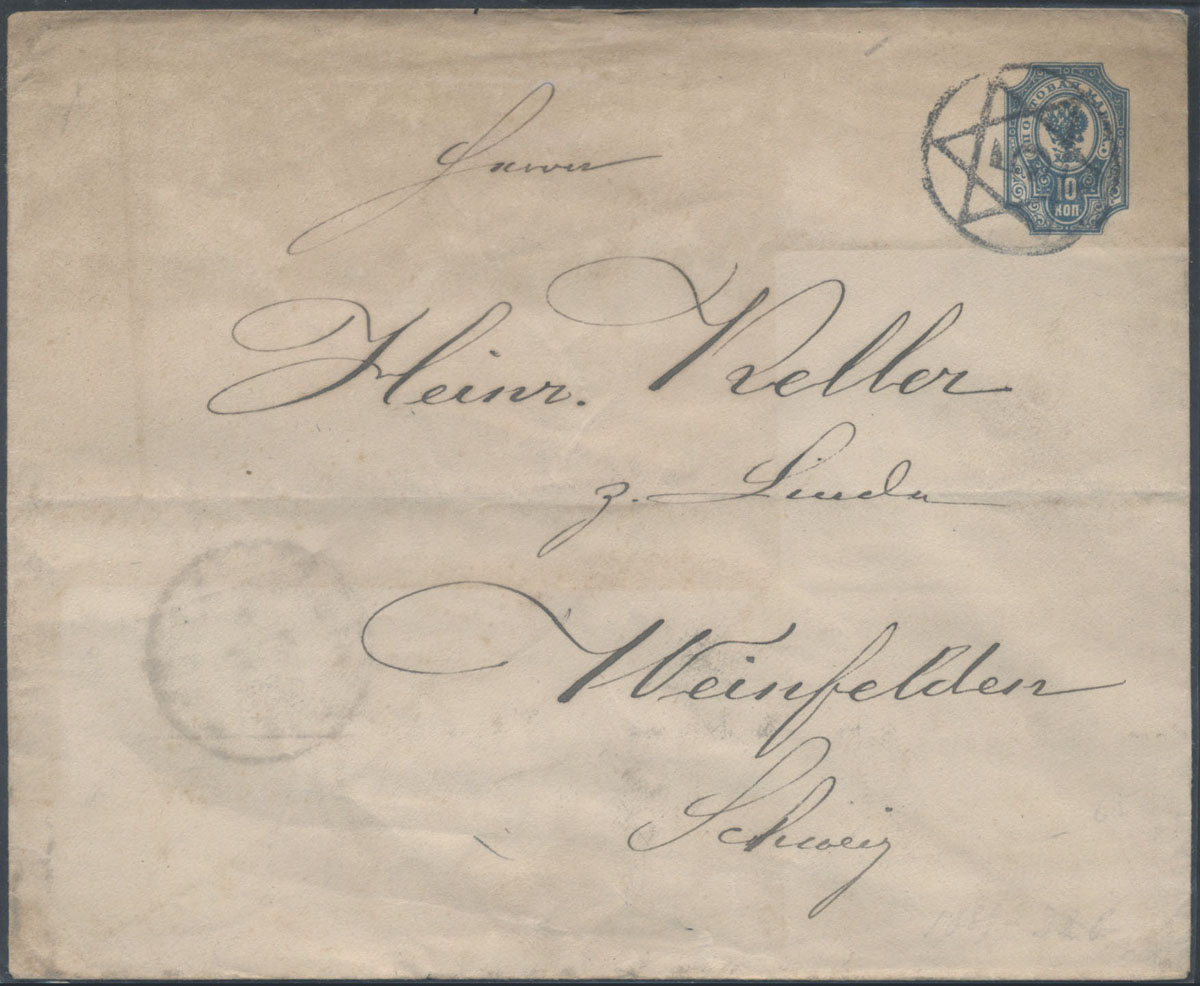 ПОЧТОВАЯ МАРКА
10
КОП
Herrn
Heinr. Keller
z. Linde
Weinfelden
Schweiz